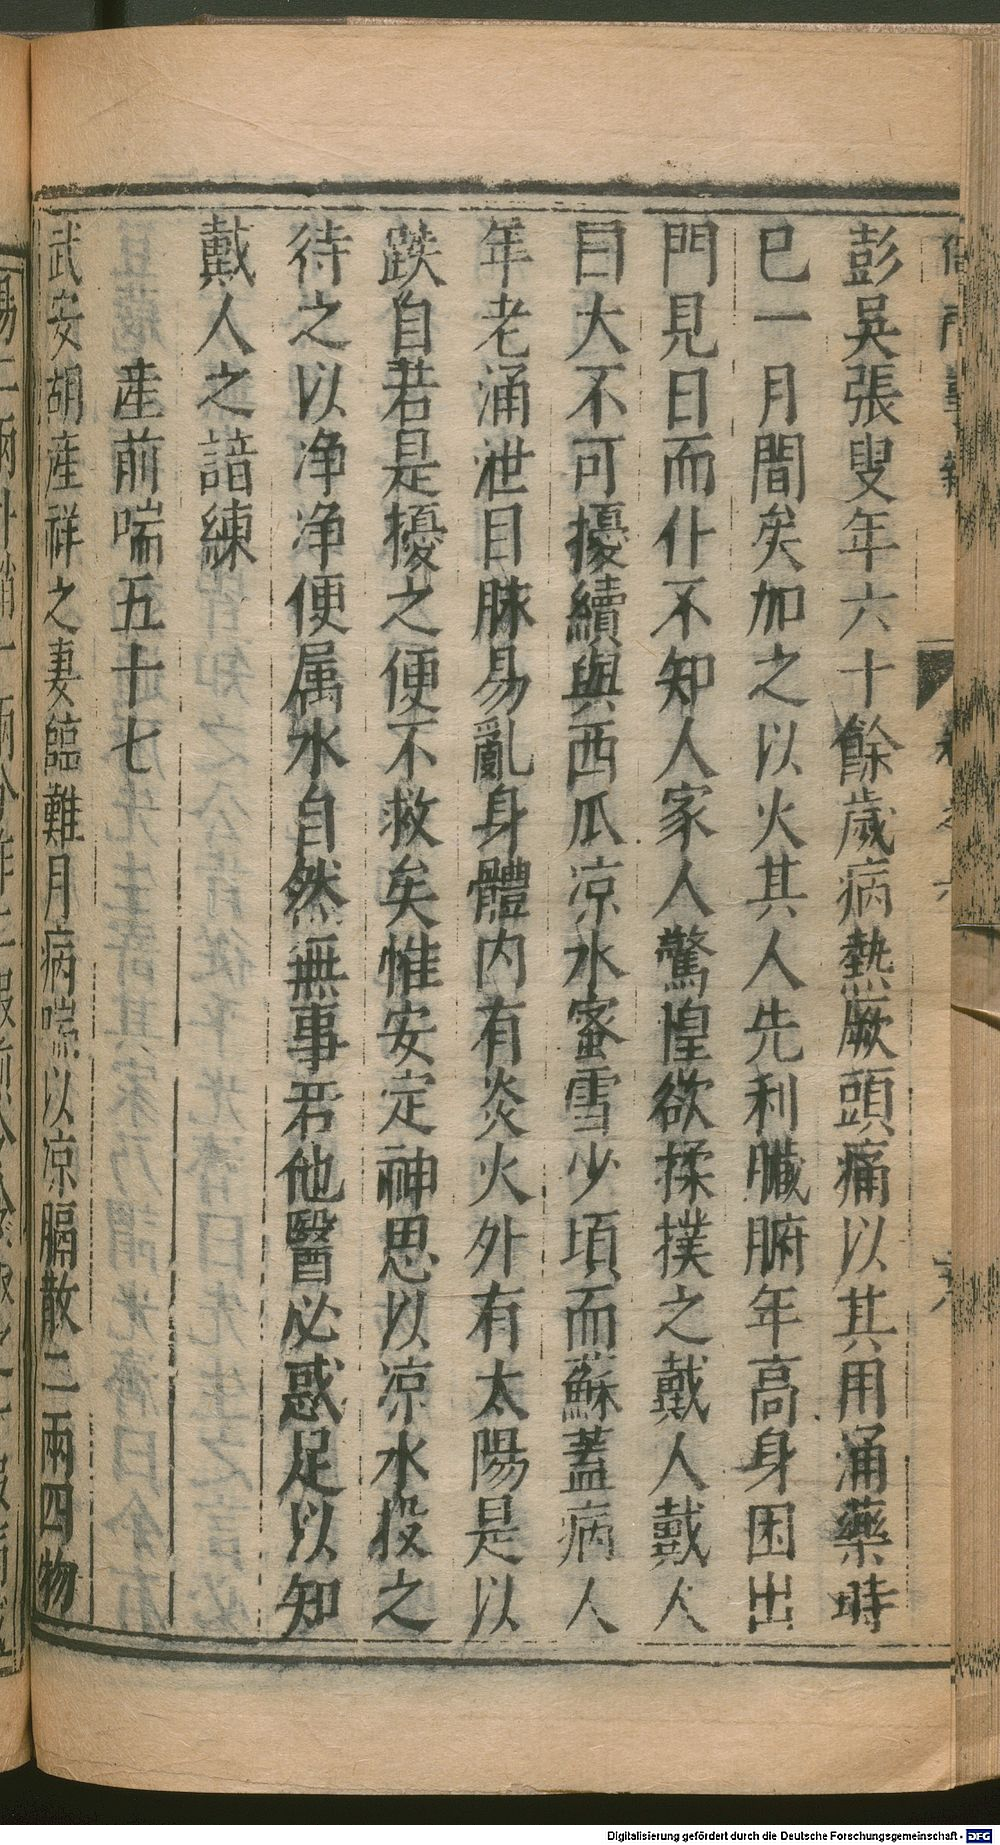 彭吳張叟年六十餘歲病熱厥頭痛以其用涌藥時
已一月間矣加之以火其人先利臟腑年高身困出
門見日而仆不知人家人驚惶欲揉撲之戴人戴人
曰大不可擾續與西瓜凉水蜜雪少頃而蘇蓋病人
年老涌泄目脉易亂身體內有炎火外有太陽是以
跌自若是擾之便不救矣惟安定神思以凉水投之
待之以净净便属水自然無事若他醫必惑足以知
戴人之諳練
產前喘五十七
武安胡產祥之妻臨難月病喘以凉膈散二兩四物
Digitalisierung gefördert durch die Deutsche Forschungsgemeinschaft - DFG